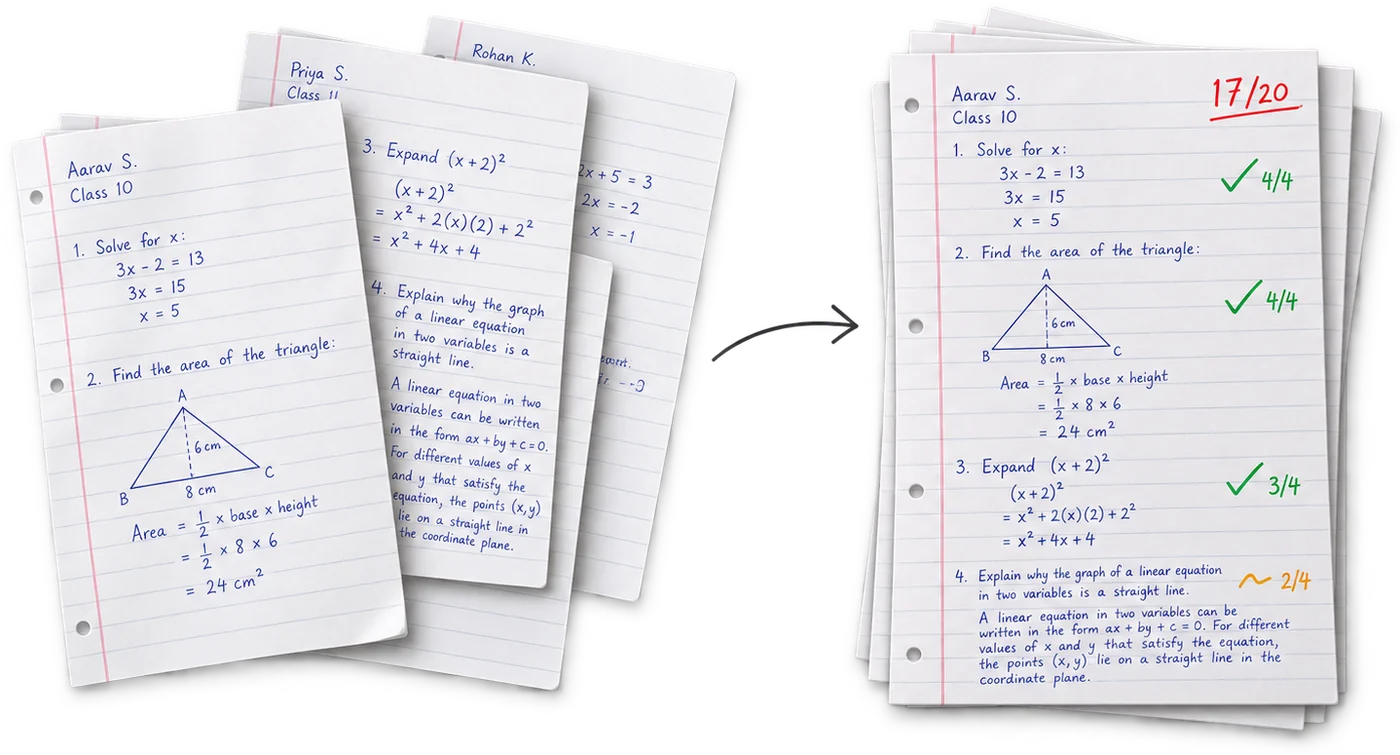 Aarav S.
Class 10
1. Solve for x:
3x - 2 = 13
3x = 15
x = 5
2. Find the area of the triangle:
A
6 cm
B
C
8 cm
Area = 1/2 x base x height
= 1/2 x 8 x 6
= 24 cm²
Priya S.
Class 11
3. Expand (x + 2)²
(x + 2)²
= x² + 2(x)(2) + 2²
= x² + 4x + 4
4. Explain why the graph
of a linear equation
in two variables is a
straight line.
A linear equation in two
variables can be written
in the form ax + by + c = 0.
For different values of x
and y that satisfy the
equation, the points (x, y)
lie on a straight line in
the coordinate plane.
Rohan K.
2x + 5 = 3
2x = -2
x = -1
Aarav S.
Class 10
17/20
1. Solve for x:
3x - 2 = 13
3x = 15
x = 5
✓ 4/4
2. Find the area of the triangle:
A
6 cm
B
C
8 cm
✓ 4/4
Area = 1/2 x base x height
= 1/2 x 8 x 6
= 24 cm²
3. Expand (x + 2)²
(x + 2)²
= x² + 2(x)(2) + 2²
= x² + 4x + 4
✓ 3/4
4. Explain why the graph of a linear equation
in two variables is a straight line.
~ 2/4
A linear equation in two variables can be
written in the form ax + by + c = 0. For different
values of x and y that satisfy the equation,
the points (x, y) lie on a straight line in the
coordinate plane.